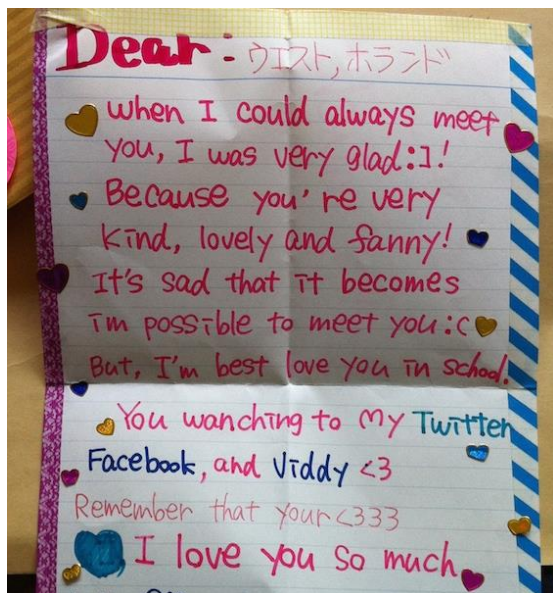 Dear: ウエスト,ホランド
when I could always meet
you, I was very glad:]!
Because you're very
kind, lovely and fanny!
It's sad that it becomes
impossible to meet you:c
But, I'm best love you in school.
You wanching to my Twitter
Facebook, and Viddy <3
Remember that your<333
I love you so much